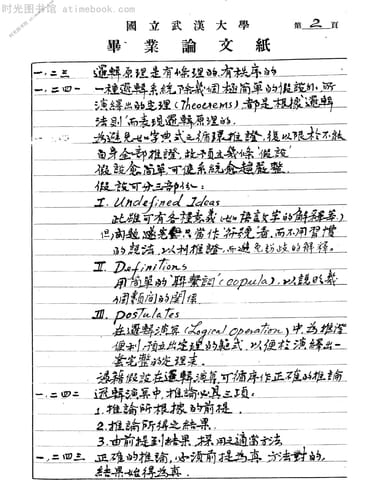 时光图书馆 atimebook.com
國立武漢大學 第2頁
畢業論文紙
一.二三 邏輯原理是有條理的,有秩序的
一.二四一 一種邏輯系統,除幾個極簡單的假設外,所
演繹出的定理(Theorems)都是根據邏輯
法則而表現邏輯原理的.
為避免如字典式之循環推證,復以限於不能
自身全部推證,故預立幾條“假設”
假設愈簡單可使系統愈趨嚴整.
假設可分三部份:
I. Undefined Ideas
此雖可有各種意義(如語數英的解釋等)
但
的說法,以利推證,而避免紛歧的解釋.
II. Definitions
用簡單的“聯繫詞”(copula),以說明幾
個類間的關係
III. Postulates
在邏輯演算(Logical operation)中,為推證
便利,預立出定理的範式,以便於演繹出一
套完整的定理來.
憑藉假設在邏輯演算可循序作正確的推論
一.二四二 邏輯演算中,推論必具三項:
1. 推論所根據的前提
2. 推論所得之結果
3. 由前提到結果,採用之適當方法
一.二四三 正確的推論,必須前提為真,方法對的,
結果始得為真.